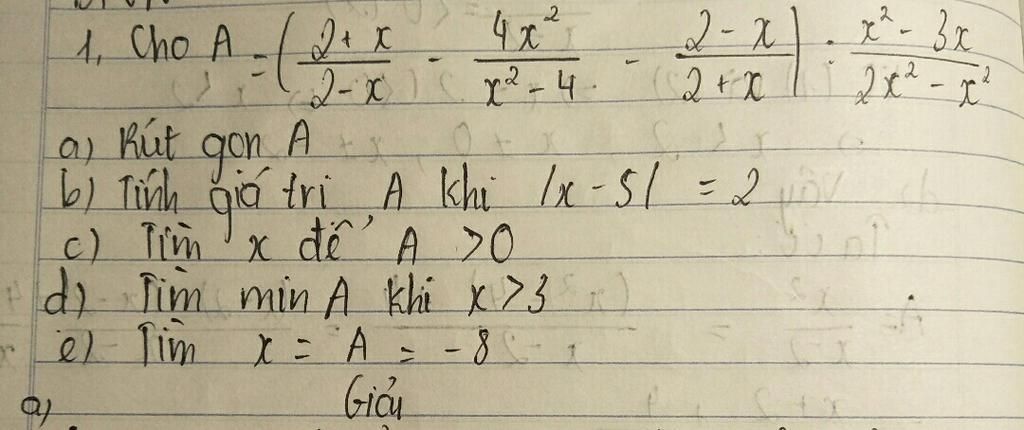 1, Cho A = ( (2 + x)/(2 - x) - 4x²/(x² - 4) - (2 - x)/(2 + x) ) : (x² - 3x)/(2x² - x²)
a) Rút gọn A
b) Tính giá trị A khi |x - 5| = 2
c) Tìm x để A > 0
d) Tìm min A khi x > 3
e) Tìm x = A = - 8
Giải
a,